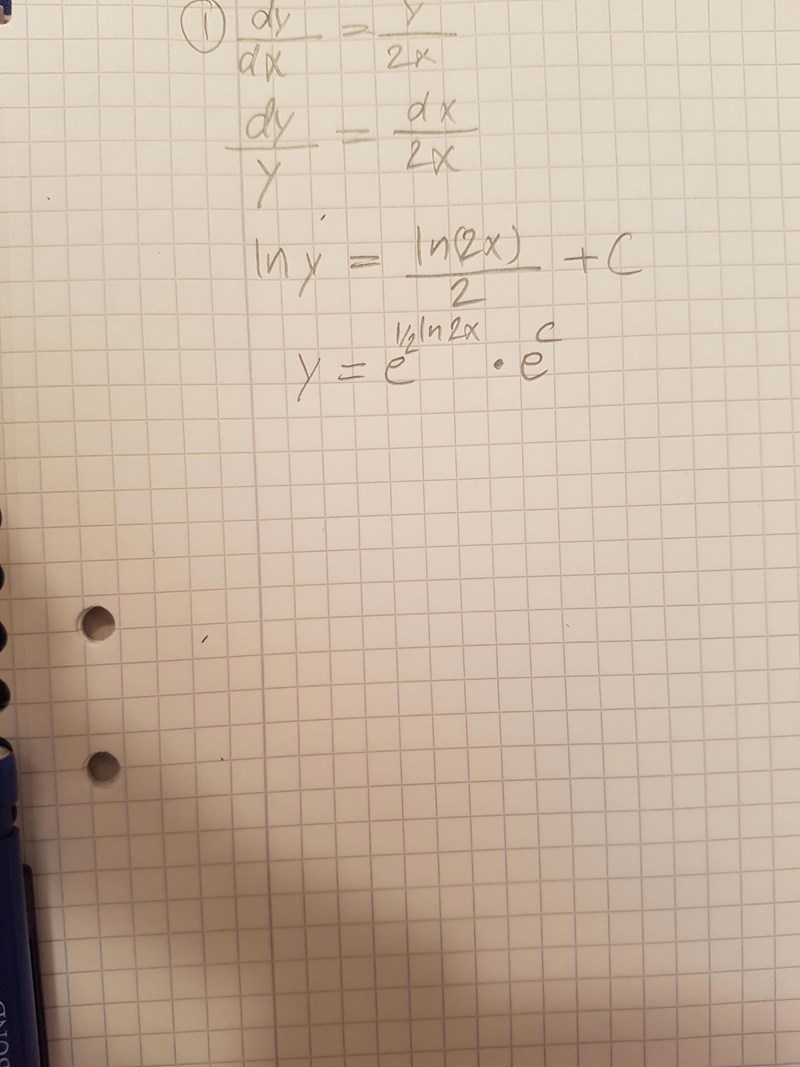 ① dy/dx = y/2x
dy/y = dx/2x
ln y = ln(2x)/2 + C
y = e^(1/2 ln 2x) · e^C